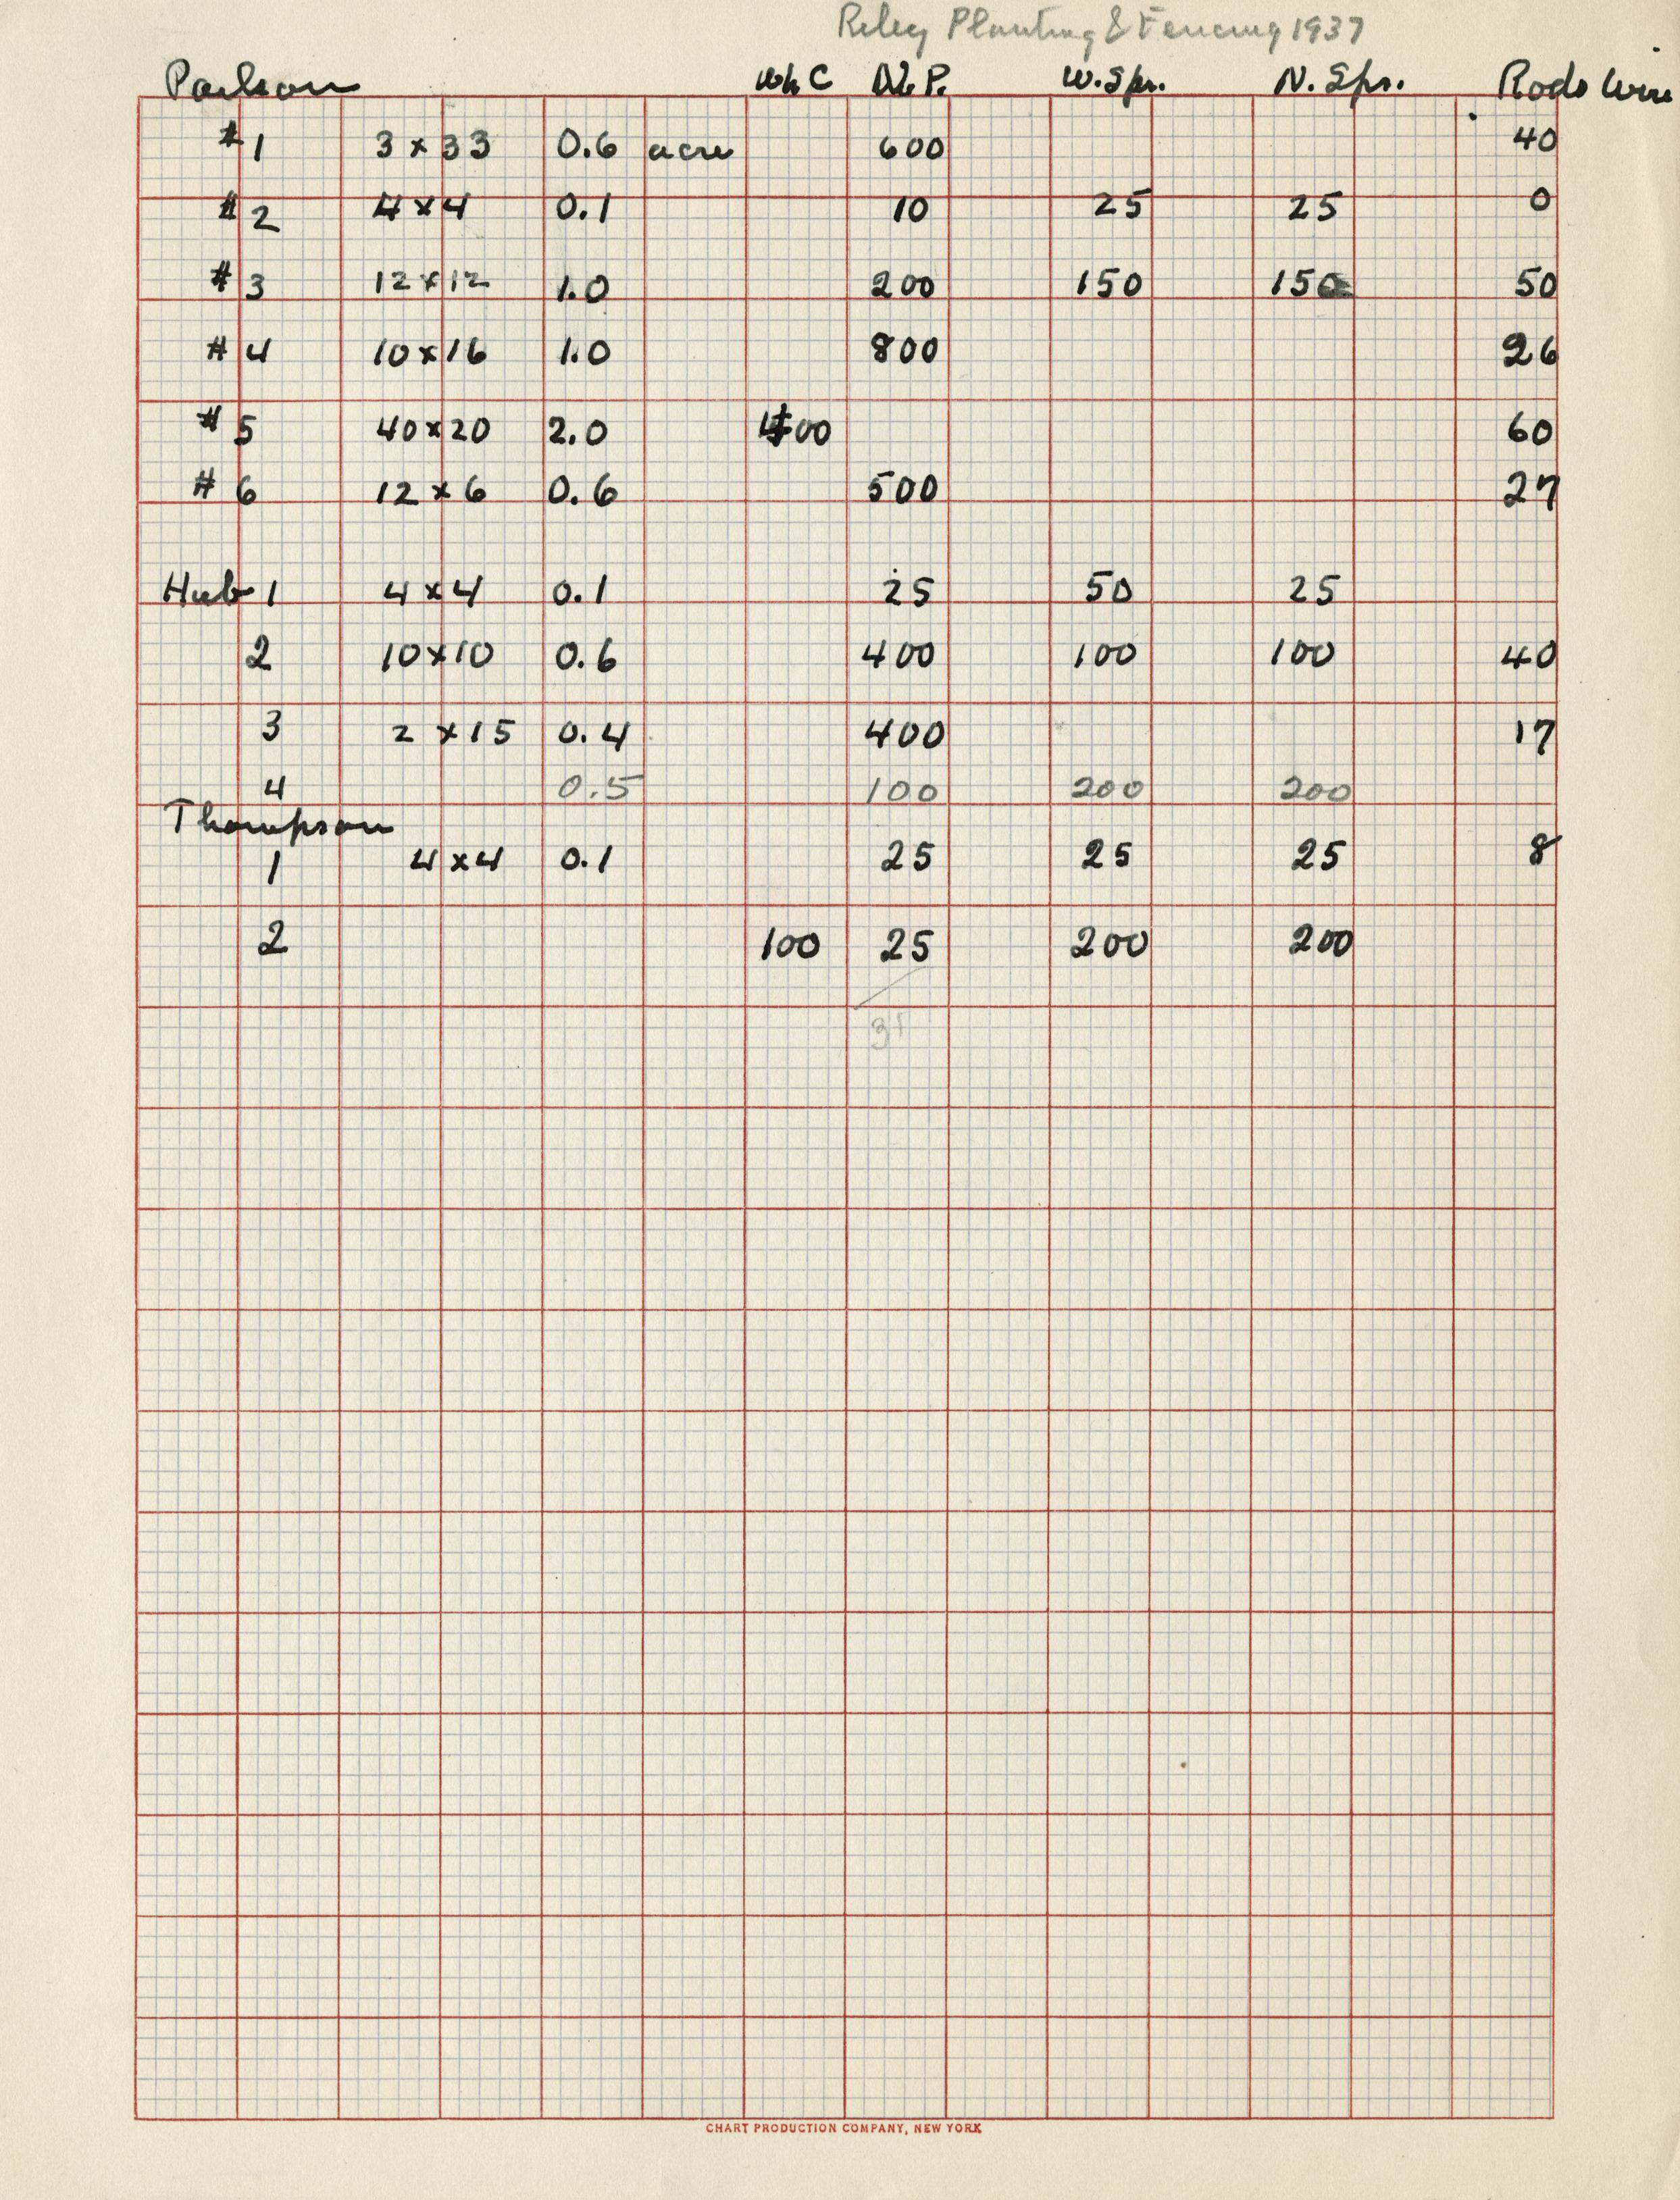 Riley Planting & Fencing 1937
Paulson Wh C N. P. W. Spr. N. Spr. Rods Wire
#1 3 x 33 0.6 acre 600 40
#2 4 x 4 0.1 10 25 25 0
#3 12 x 12 1.0 200 150 150 50
#4 10 x 16 1.0 800 26
#5 40 x 20 2.0 400 60
#6 12 x 6 0.6 500 27
Hub 1 4 x 4 0.1 25 50 25
2 10 x 10 0.6 400 100 100 40
3 2 x 15 0.4 400 17
4 0.5 100 200 200
Thompson
1 4 x 4 0.1 25 25 25 8
2 100 25 200 200
CHART PRODUCTION COMPANY, NEW YORK